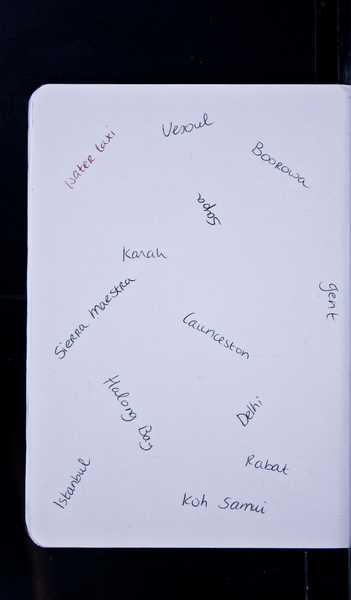 water taxi
Vesoul
Boorowa
Sapa
Karah
Sierra Maestra
gent
Launceston
Halong Bay
Delhi
Istanbul
Rabat
Koh Samui